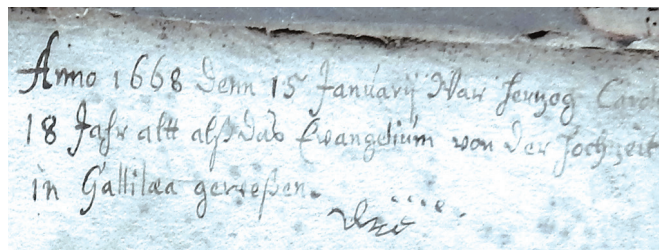 Anno 1668 Denn 15 Januarij War Herzog Carol
18 Jahr altt alß das Ewangelium von der Hochzeit
in Gallilæa geweßen.